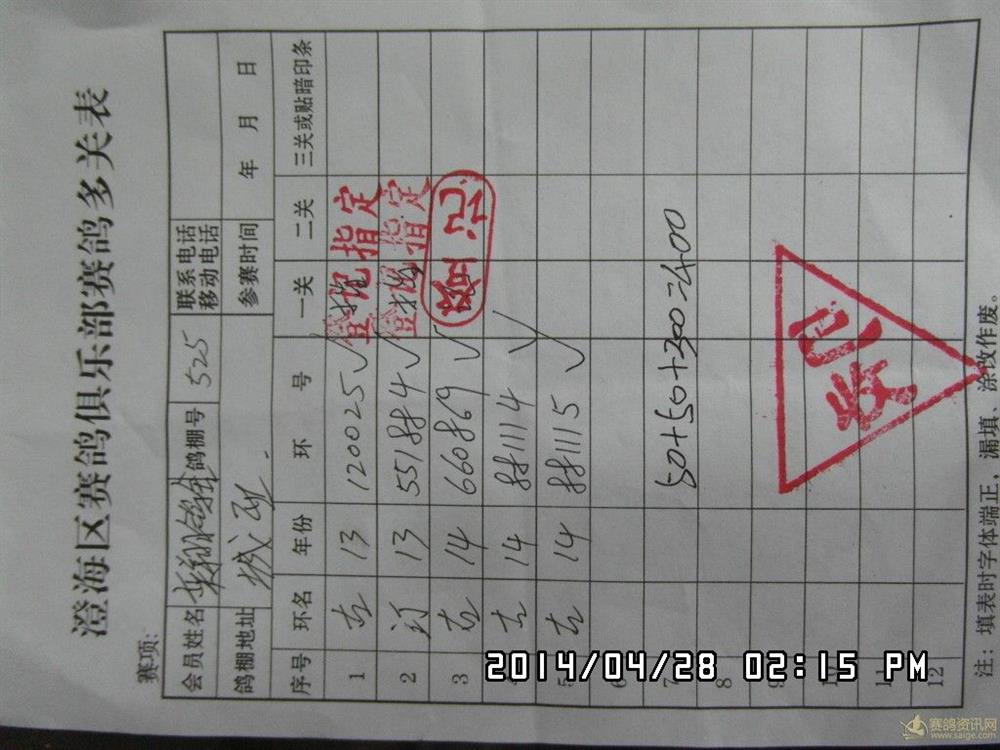 澄海区赛鸽俱乐部赛鸽多关表
赛项:
会员姓名 鸽棚号 525 联系电话 移动电话
鸽棚地址 参赛时间 年 月 日
序号 环名 年份 环 号 一关 二关 三关或贴暗印条
1 13 120025 √ 登记 指定
2 13 551884 √ 登记 指定
3 14 660869 √
4 14 881114 √
5 14 881115 √
6
7 50+50+300=400
8
9
10
11
12
登记
注:填表时字体端正,漏填、涂改作废。
2014/04/28 02:15 PM
赛鸽资讯网
www.saige.com